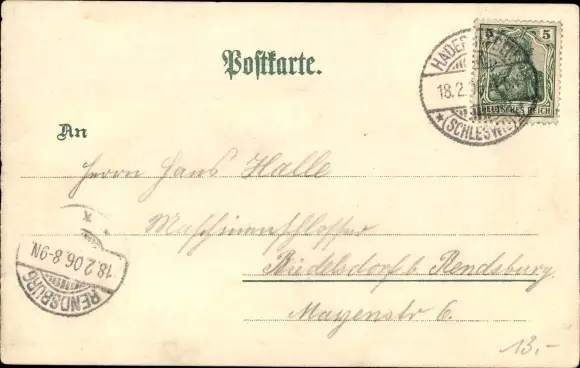 Postkarte.
5
DEUTSCHES REICH
HADER
18.2.0
*(SCHLESWIG)*
An
Herrn Hans Halle
Maschinenschlosser
Büdelsdorf b. Rendsburg.
Mayenstr 6.
RENDSBURG
18.2.06.8-9N.
13.-